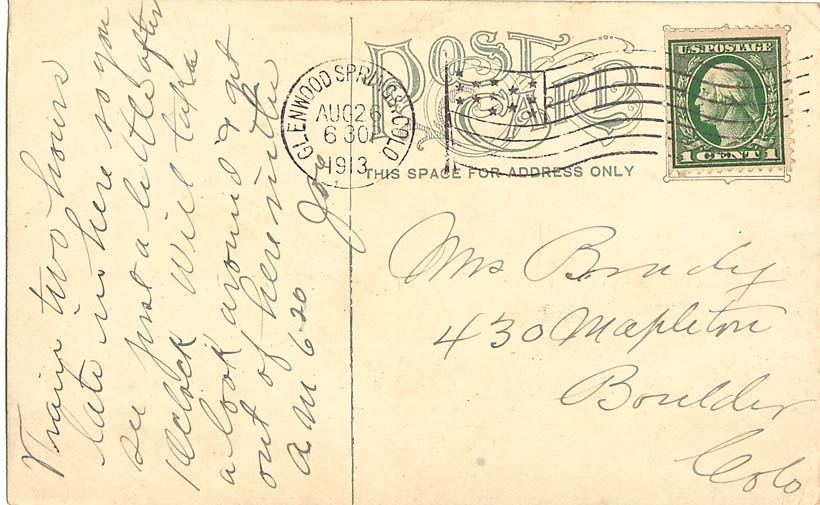 Train two hours
late in here so you
see just a little after
10 clock will take
a look around & get
out of here in the
A M 6-20
Joe
POST CARD
GLENWOOD SPRINGS, COLO
AUG 26
6 30 P
1913
U.S. POSTAGE
1 CENT 1
THIS SPACE FOR ADDRESS ONLY
Mrs Brady
430 Mapleton
Boulder
Colo